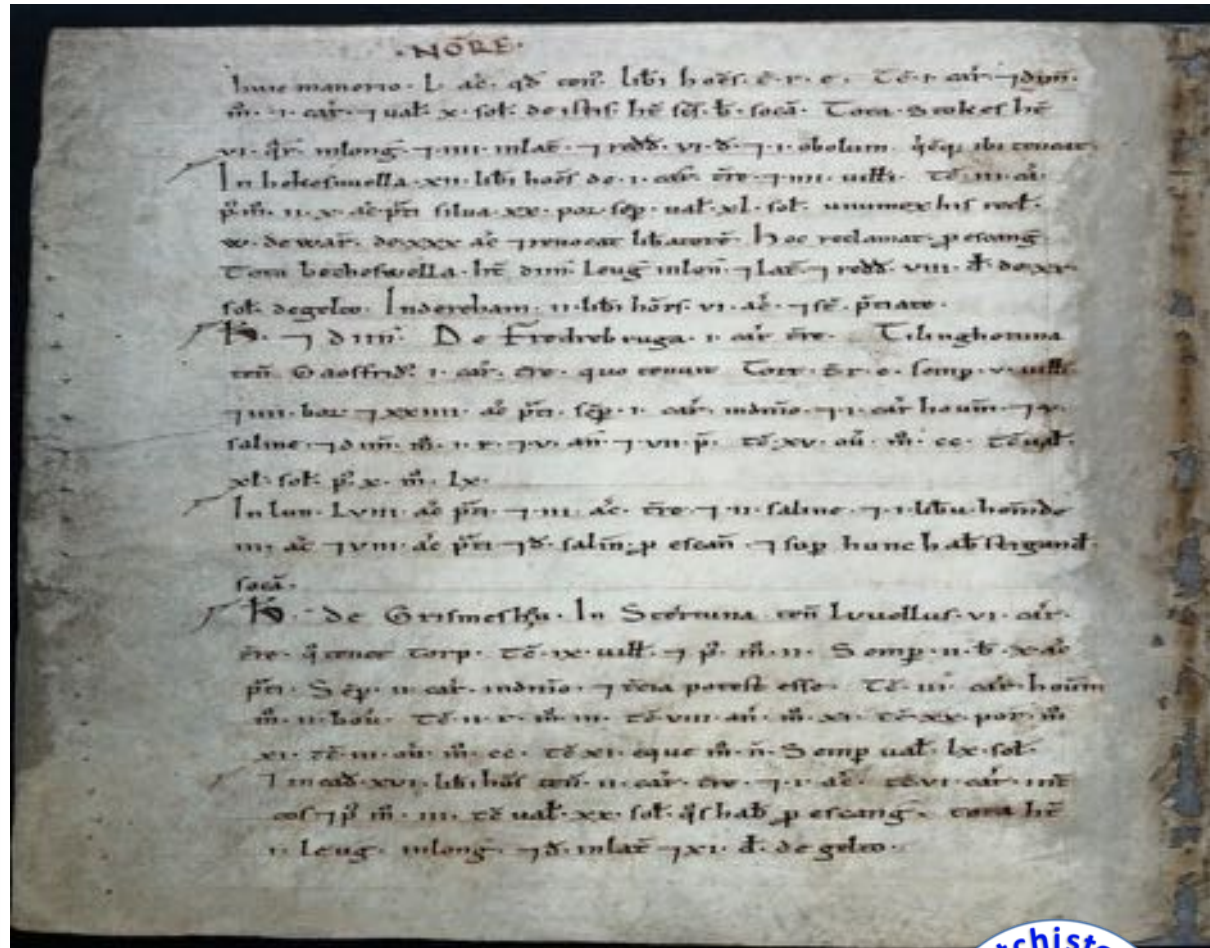 ·NORF·
huic manerio· L· ac̄· qđ ten̄· lib̄i hoēs· ē·r·e· Tc̄·i·car̄·⁊dim̄·
m̄·i·car̄·⁊ual̄·x·sol̄· de istis· hē sc̄s·b̄·socā· Tota·Stokes hē
vi·q̄r̄·inlonḡ·⁊·iiii·inlat̄·⁊redđ·vi·đ·⁊·i·obolum· q̄cq; ibi teneat·
In bekeswella·xii·lib̄i hoēs de·i·car̄ t̄re·⁊·iiii·uill̄i· tc̄·iii·car̄·
p̄⁊m̄·ii·x·ac̄·p̄ti silua·xx·por·sēp̄·ual̄·xl·sol̄· unum ex his recl̄·
W·de War̄·de xxx ac̄·⁊reuocat liberatorē· Hoc reclamat·p escanḡ·
Tota becheswella·ht̄ dim̄· leuḡ inlon̄·⁊lat̄·⁊redđ·viii·đ·de xx·
sol̄·de gelto· In dereham·ii·lib̄i hōes·vi·ac̄·
·⁊dim̄· De Fredrebruga·i·car̄ t̄re· Tilinghetuna
ten̄ Gaosfrid̄·i·car̄·t̄re·que tenuit Tort·t̄·r·e·semp̄·v·uill̄i
⁊iiii·bor·⁊xxiiii·ac̄ p̄ti·sēp̄·i·car̄·indnio·⁊·i·car̄ houm̄·⁊v·
saline·⁊dim̄·m̄·i·r·⁊·v·an̄·⁊vii·p̄· tc̄ xv·oū·m̄·cc· tc̄ual̄·
xl·sol̄·p̄·x·m̄·lx·
In lun·Lviii·ac̄ p̄ti·⁊·iii·ac̄·t̄re·⁊·ii·saline·⁊·i·libū·hom̄ de
iiii·ac̄ ⁊viii·ac̄ p̄ti·⁊đ·salin̄·p escan̄·⁊sup̄ hunc hab̄ stigand̄·
socā·
·de Grimeshu· In Stertuna ten̄ Luuellus·vi·car̄·
t̄re·q̄ tenet Torp· Tc̄·ix·uill̄·⁊ p̄·m̄·ii· Semp̄·ii·b̄·x·ac̄
p̄ti· Sēp̄·ii·car̄·indnio·⁊t̄cia potest esse· Tc̄·iii·car̄·houm̄
m̄·ii·boū· Tc̄·ii·r·m̄·iii· tc̄ viii·an̄·m̄·xi· tc̄·xx·por·m̄
xi·tc̄·iii·oū·m̄·cc· tc̄ xi·eque m̄·n̄· Semp ual̄·lx·sol̄·
In eađ·xvi·lib̄i hōes ten̄·ii·car̄·t̄re·⁊·i·ac̄· tc̄ vi·car̄·int̄
eos⁊p̄ m̄·iii·tc̄ ual̄·xx·sol̄·q̄s hab̄ p escanḡ· tota ht̄
i·Leug·inlong·⁊đ·inlat̄⁊xi·đ·de gelto·